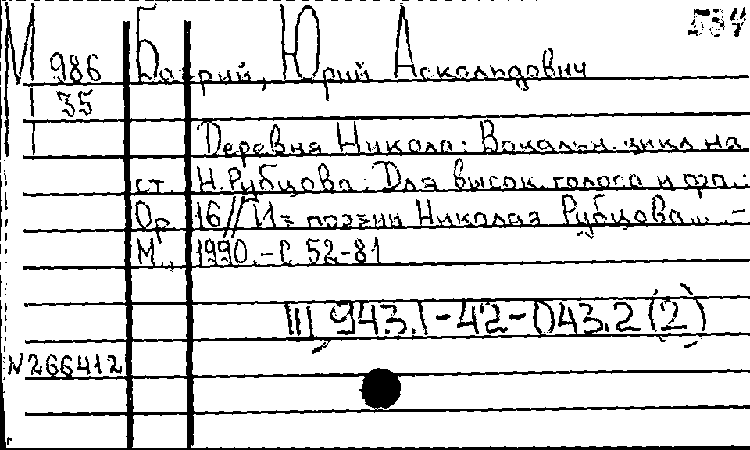 534
М 986 Багрий, Юрий Асклпидович
35
Деревня Никола: Вокальн. цикл на
ст. Н. Рубцова: Для высок. голоса и фп.:
Ор. 16 // Из поэзии Николая Рубцова... -
М., 1990. - С 52-81
Ш 943.1-42-043.2(2)
N266412